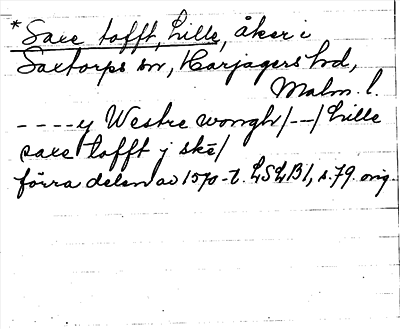 * Saxe tofft, Lille, åker i
Saxtorps sn, Harjagers hd,
Malm. l.
----y Westre wongh/--/Lille
saxe tofft j skē/
förra delen av 1570-t. LSLB1, s.79. orig.